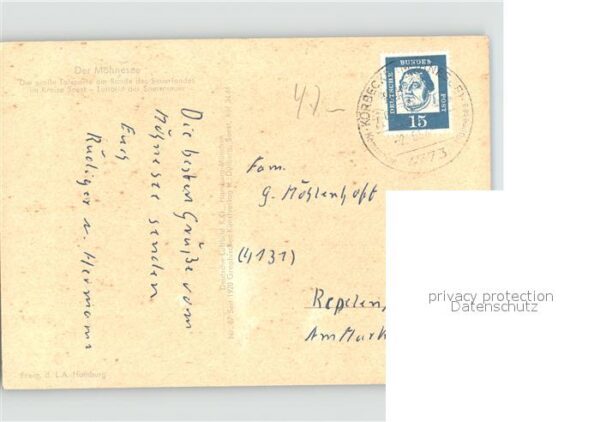 Der Möhnesee
Die große Talsperre am Rande des Sauerlandes
im Kreise Soest -
47-
DEUTSCHE BUNDESPOST
15
KÖRBECKE
4773
Die besten Grüße vom
Möhnesee senden
Euch
Rüdiger u. Hermann
Fam.
G. Möhlenhoff
(4131)
Repelen,
Am Mark
Freig. d. L.A. Hamburg
privacy protection
Datenschutz